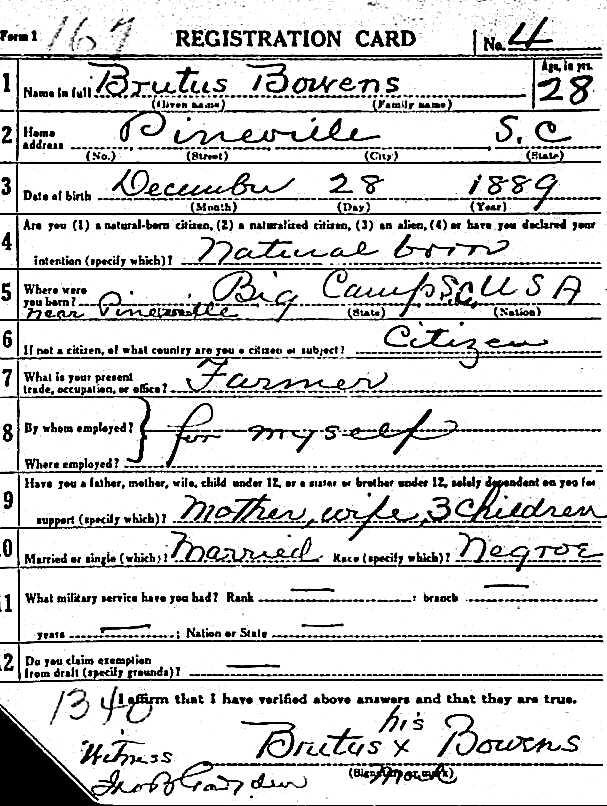 Form 1 167 REGISTRATION CARD No. 4
1 Name in full Brutus Bowens Age, in yrs. 28
(Given name) (Family name)
2 Home address Pineville S.C
(No.) (Street) (City) (State)
3 Date of birth December 28 1889
(Month) (Day) (Year)
Are you (1) a natural-born citizen, (2) a naturalized citizen, (3) an alien, (4) or have you declared your
4 intention (specify which)? Natural born
5 Where were you born? Big Camp S.C. USA
near Pineville (State) (Nation)
6 If not a citizen, of what country are you a citizen or subject? Citizen
7 What is your present trade, occupation, or office? Farmer
8 By whom employed? for myself
Where employed?
9 Have you a father, mother, wife, child under 12, or a sister or brother under 12, solely dependent on you for
support (specify which)? Mother, wife, 3 children
0 Married or single (which)? Married Race (specify which)? Negroe
1 What military service have you had? Rank — ; branch —
years — ; Nation or State —
2 Do you claim exemption from draft (specify grounds)? —
1340 I affirm that I have verified above answers and that they are true.
his
Witness Brutus x Bowens
(Signature or mark) Mark